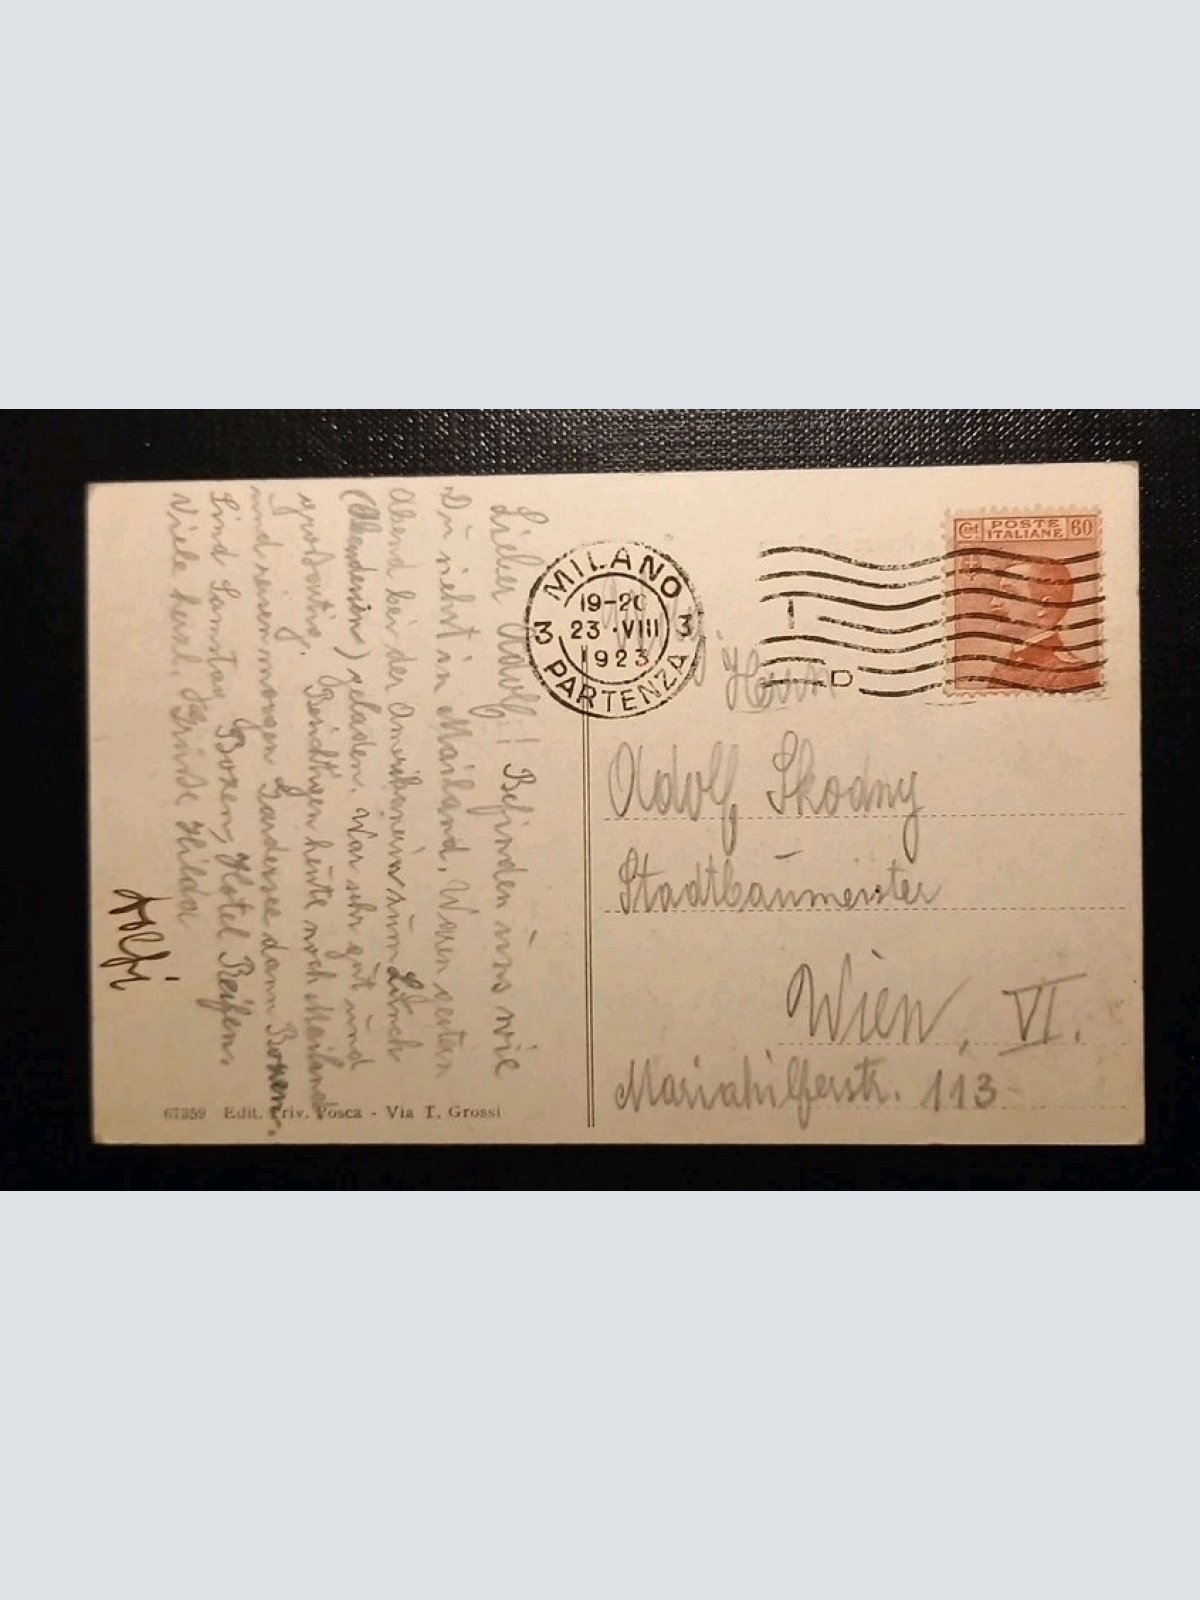 Lieber Adolf! Befinden uns wie
Du siehst in Mailand. Waren gestern
Abend bei der Amerikanerin zum Lunch
geladen. War sehr gut und
großartig. Besichtigen heute noch Mailand
und reisen morgen Gardersee dann Bozen.
Sind Samstag Bozen, Hotel Reifen.
Viele herzl. Grüße Hilda
Adolfi
67359 Edit. Priv. Posca - Via T. Grossi
MILANO
19-20
3 23 · VIII 3
1923
PARTENZA
Cent POSTE ITALIANE 60
Herrn
Adolf Skodny
Stadtbaumeister
Wien, VI.
Mariahilferstr. 113